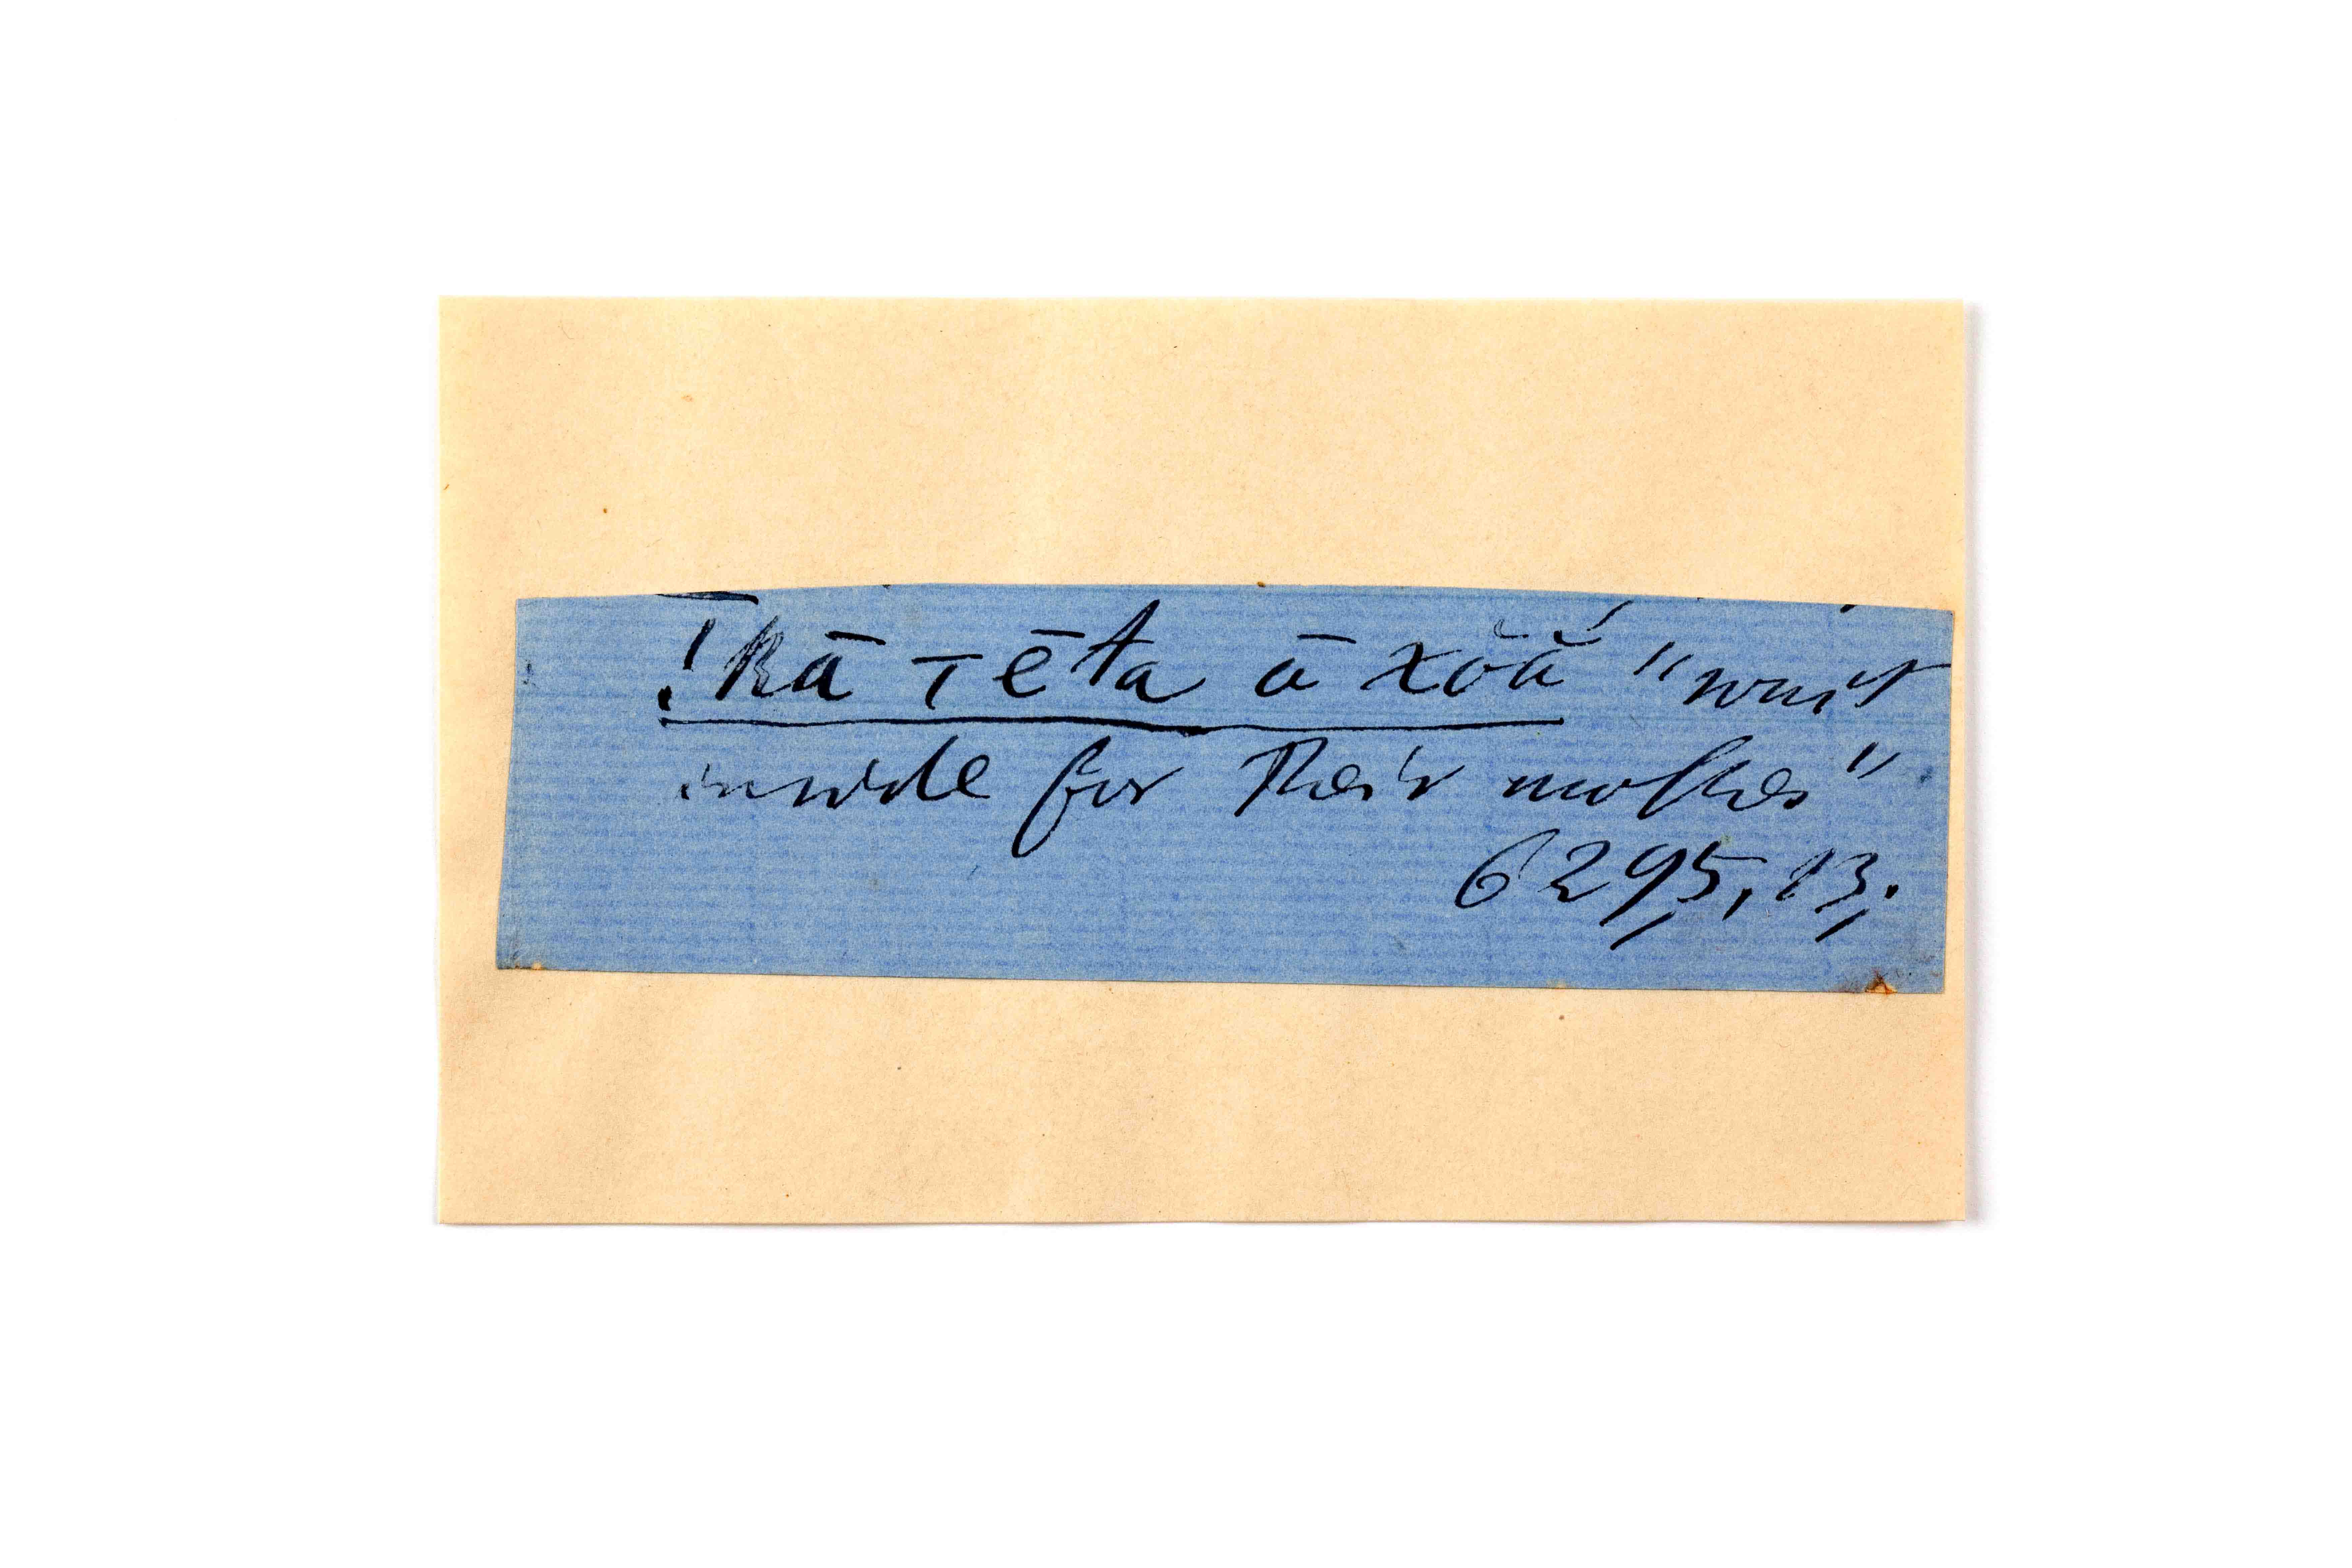 !kā -ēta ā xŏă "wait
inside for their mother"
6295, 13.